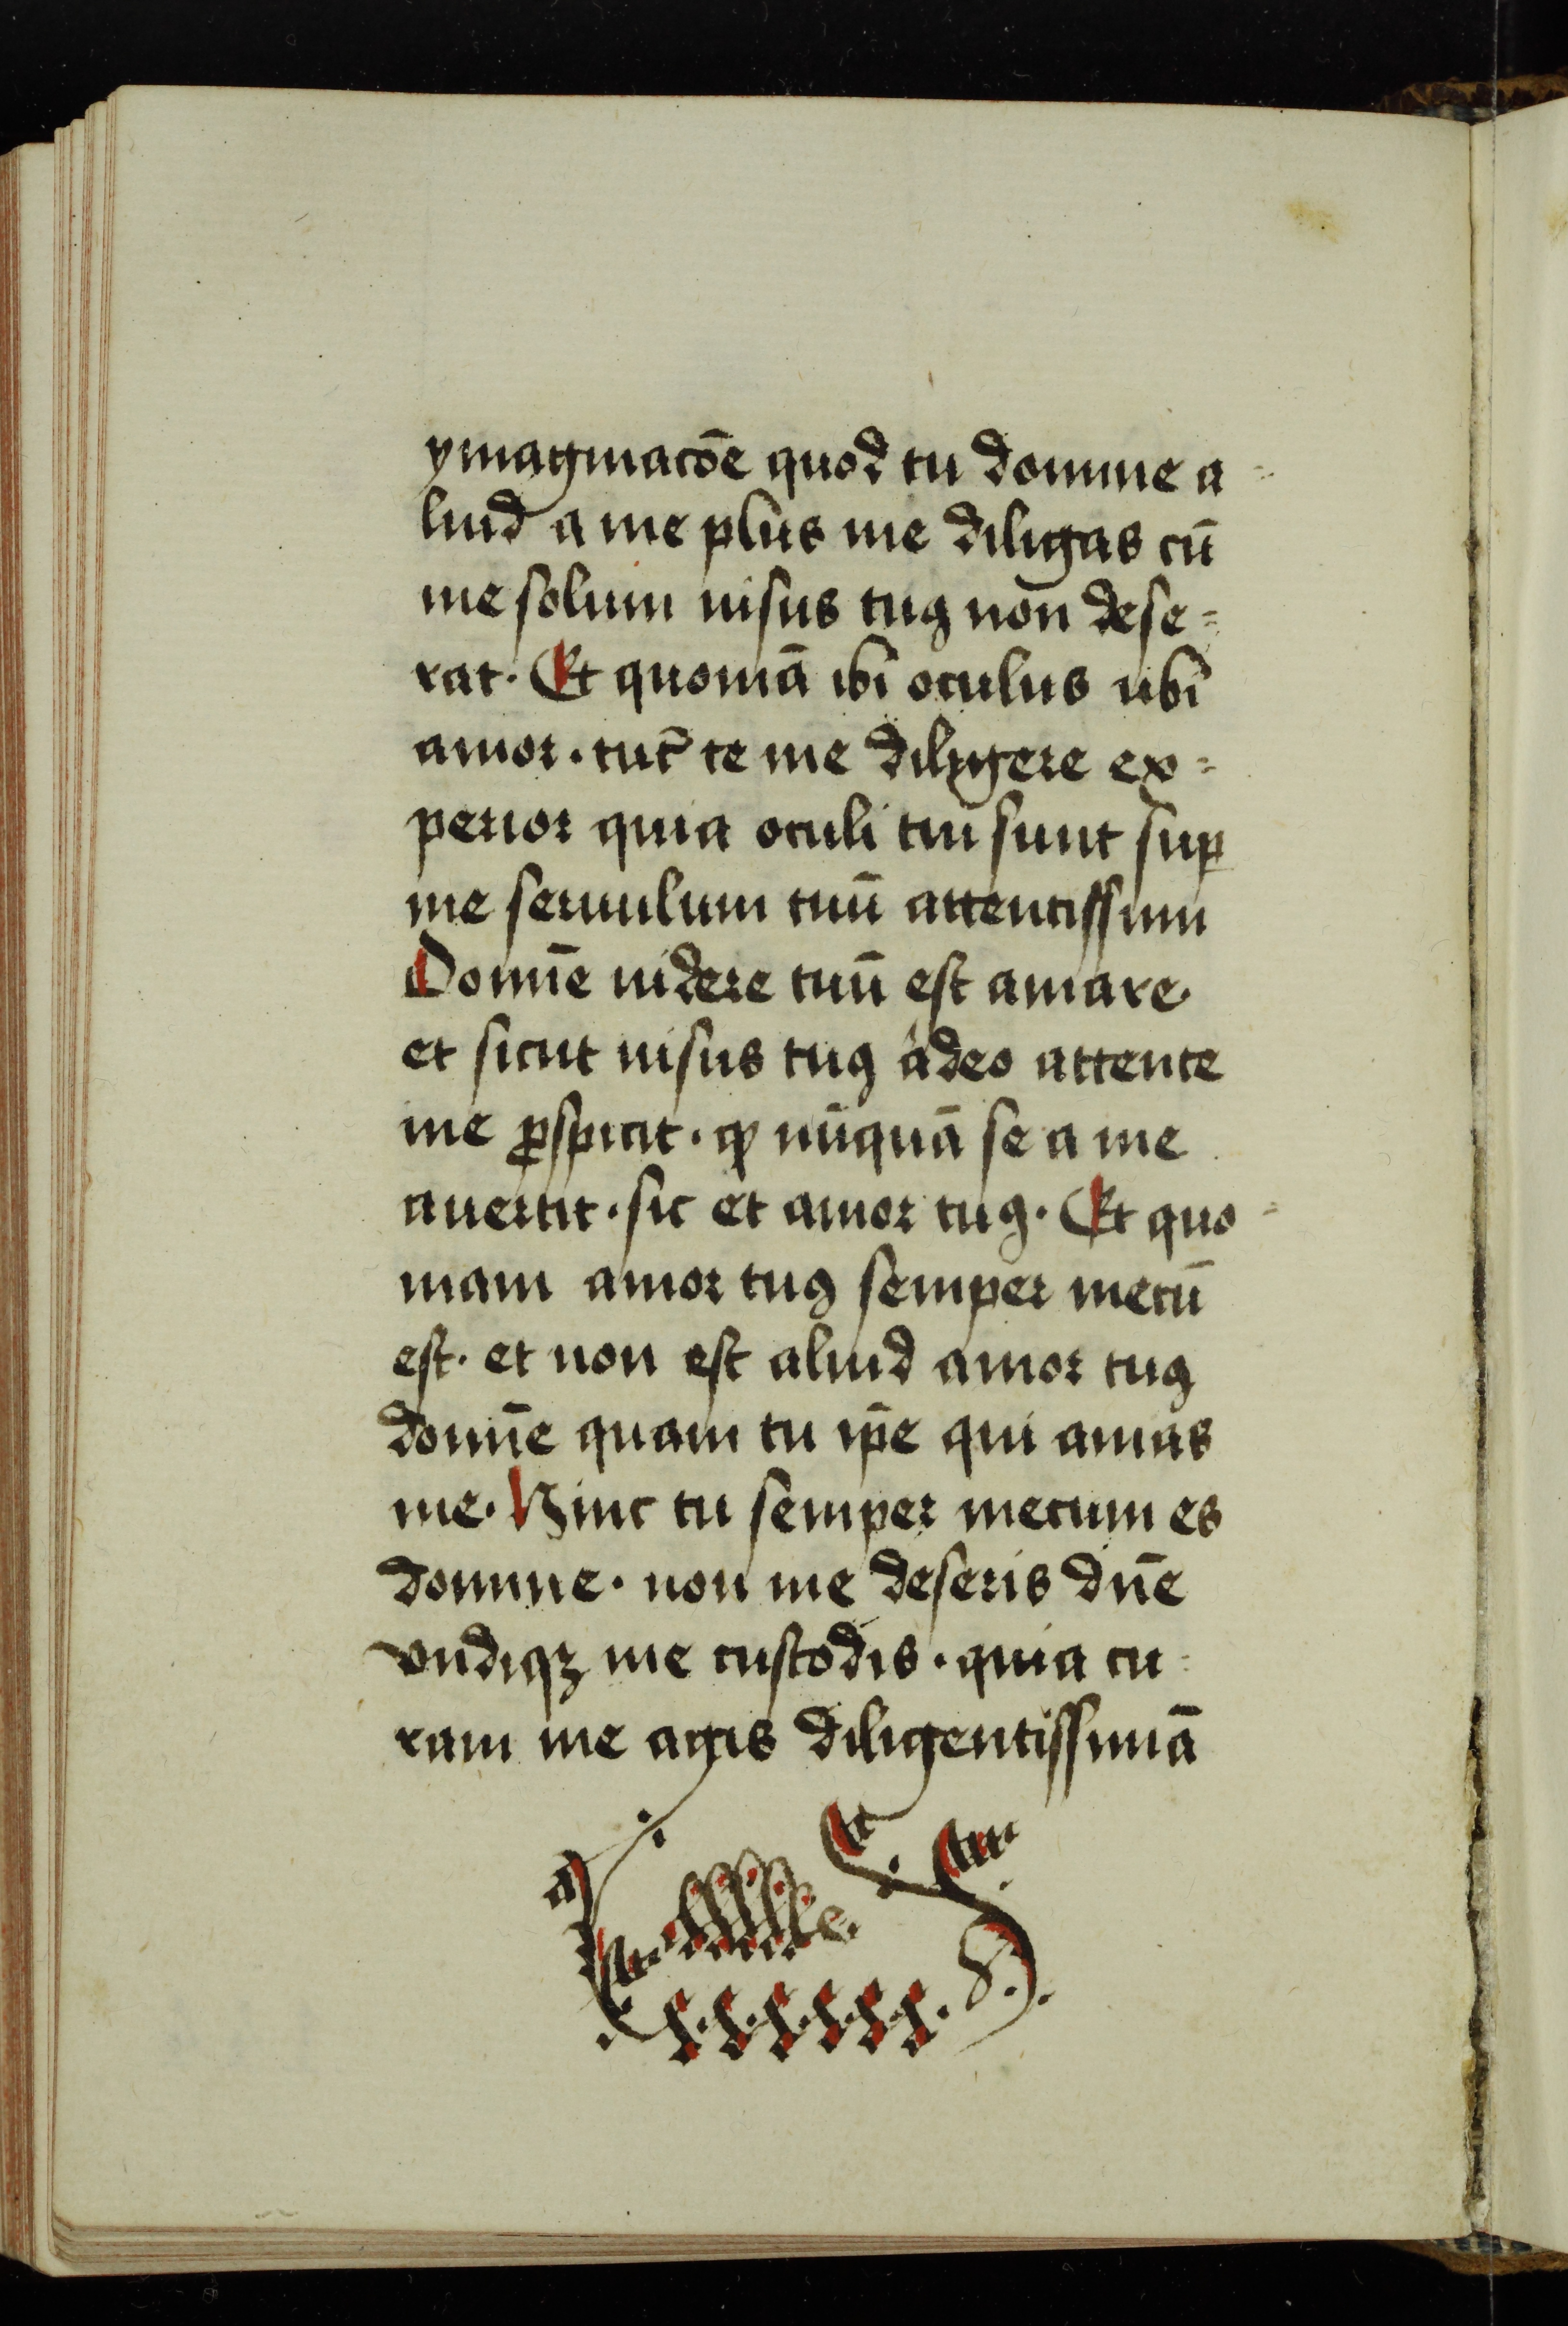 ymaginacōe quod tu domine a=
liud a me plus me diligas cū
me solum uisus tuꝯ non dese=
rat. Et quoniā ibi oculus ubi
amor. tūc te me diligere ex=
perior quia oculi tui sunt suꝑ
me seruulum tuū attentissimi
Domīe uidere tuū est amare.
et sicut uisus tuꝯ adeo attente
me ꝓspicit. ꝙ nūquā se a me
auertit. sic et amor tuꝯ. Et quo=
niam amor tuꝯ semper mecū
est. et non est aliud amor tuꝯ
domīe quam tu ip̄e qui amas
me. Hinc tu semper mecum es
domine. non me deseris dn̄e
vndiqꝫ me custodis. quia cu=
ram me agis diligentissimā